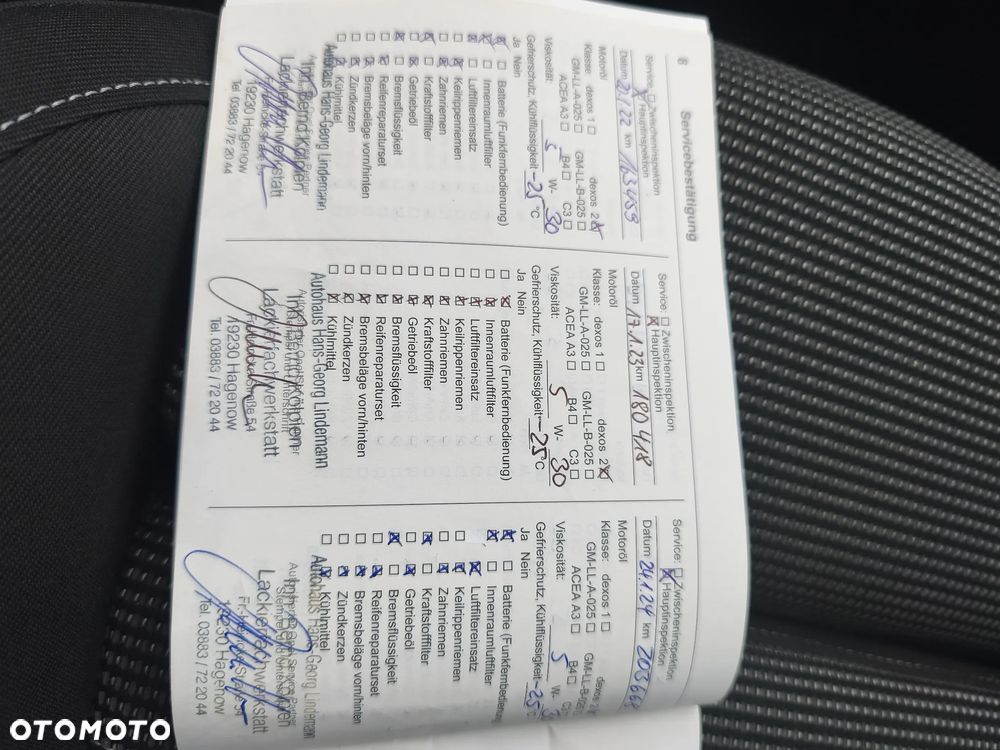 8
Servicebestätigung
Service: Zwischeninspektion
Hauptinspektion
Datum km 163459
Motoröl
Klasse: dexos 1 dexos 2
GM-LL-A-025 GM-LL-B-025
ACEA A3 B4 C3
Viskosität: 5 W- 30
Gefrierschutz, Kühlflüssigkeit -25 °C
Ja Nein
Batterie (Funkfernbedienung)
Innenraumluftfilter
Luftfiltereinsatz
Keilrippenriemen
Zahnriemen
Kraftstofffilter
Getriebeöl
Bremsflüssigkeit
Reifenreparaturset
Bremsbeläge vorn/hinten
Zündkerzen
Kühlmittel
Autohaus Hans-Georg Lindemann
Lackierfachwerkstatt
19230 Hagenow
Tel. 03883 / 72 20 44
Service: Zwischeninspektion
Hauptinspektion
Datum 17.1.23 km 180418
Motoröl
Klasse: dexos 1 dexos 2
GM-LL-A-025 GM-LL-B-025
ACEA A3 B4 C3
Viskosität: 5 W- 30
Gefrierschutz, Kühlflüssigkeit -25 °C
Ja Nein
Batterie (Funkfernbedienung)
Innenraumluftfilter
Luftfiltereinsatz
Keilrippenriemen
Zahnriemen
Kraftstofffilter
Getriebeöl
Bremsflüssigkeit
Reifenreparaturset
Bremsbeläge vorn/hinten
Zündkerzen
Kühlmittel
Autohaus Hans-Georg Lindemann
19230 Hagenow
Tel. 03883 / 72 20 44
Service: Zwischeninspektion
Hauptinspektion
Datum 24.1.24 km
Motoröl
Klasse: dexos 1 dexos 2
GM-LL-A-025 GM-LL-B-025
ACEA A3 B4
Viskosität: 5 W-
Gefrierschutz, Kühlflüssigkeit -25 °C
Ja Nein
Batterie (Funkfernbedienung
Innenraumluftfilter
Luftfiltereinsatz
Keilrippenriemen
Zahnriemen
Kraftstofffilter
Getriebeöl
Bremsflüssigkeit
Reifenreparaturset
Bremsbeläge vorn/hinten
Zündkerzen
Kühlmittel
Autohaus Hans-Georg Lindemann
Hagenow
Tel. 03883 / 72 20 44
OTOMOTO